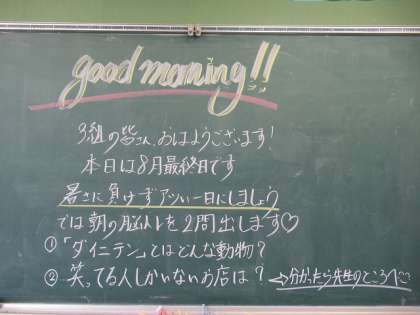 good morning!!
3組の皆さん、おはようございます!
本日は8月最終日です
暑さに負けずアツい一日にしましょう
では朝の脳トレを2問出します♡
①「ダイニテン」とはどんな動物?
②笑ってる人しかいないお店は? ←分かったら先生のところへ